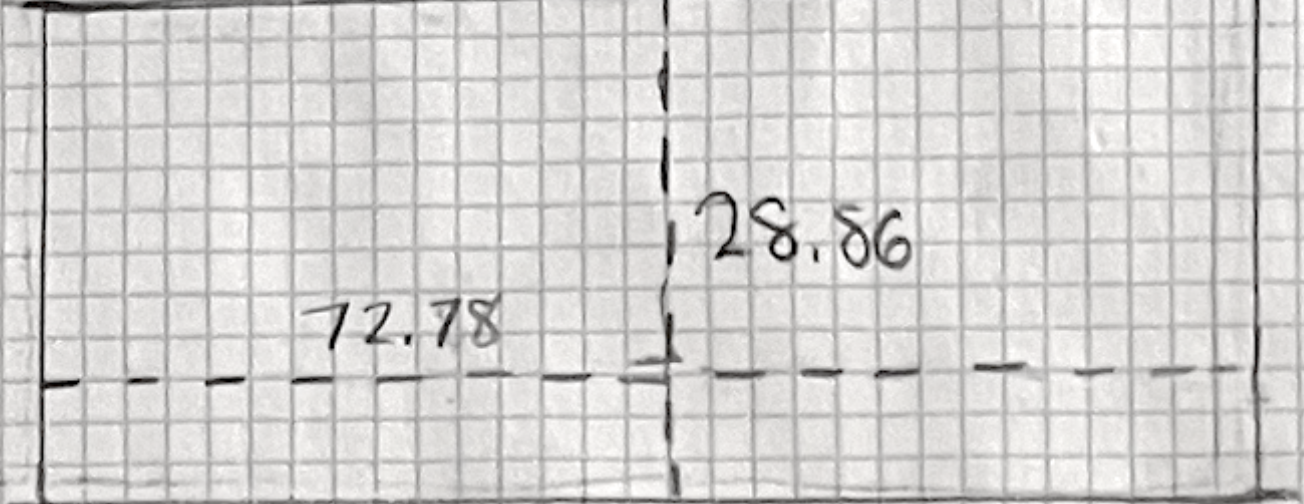 28.86
72.78